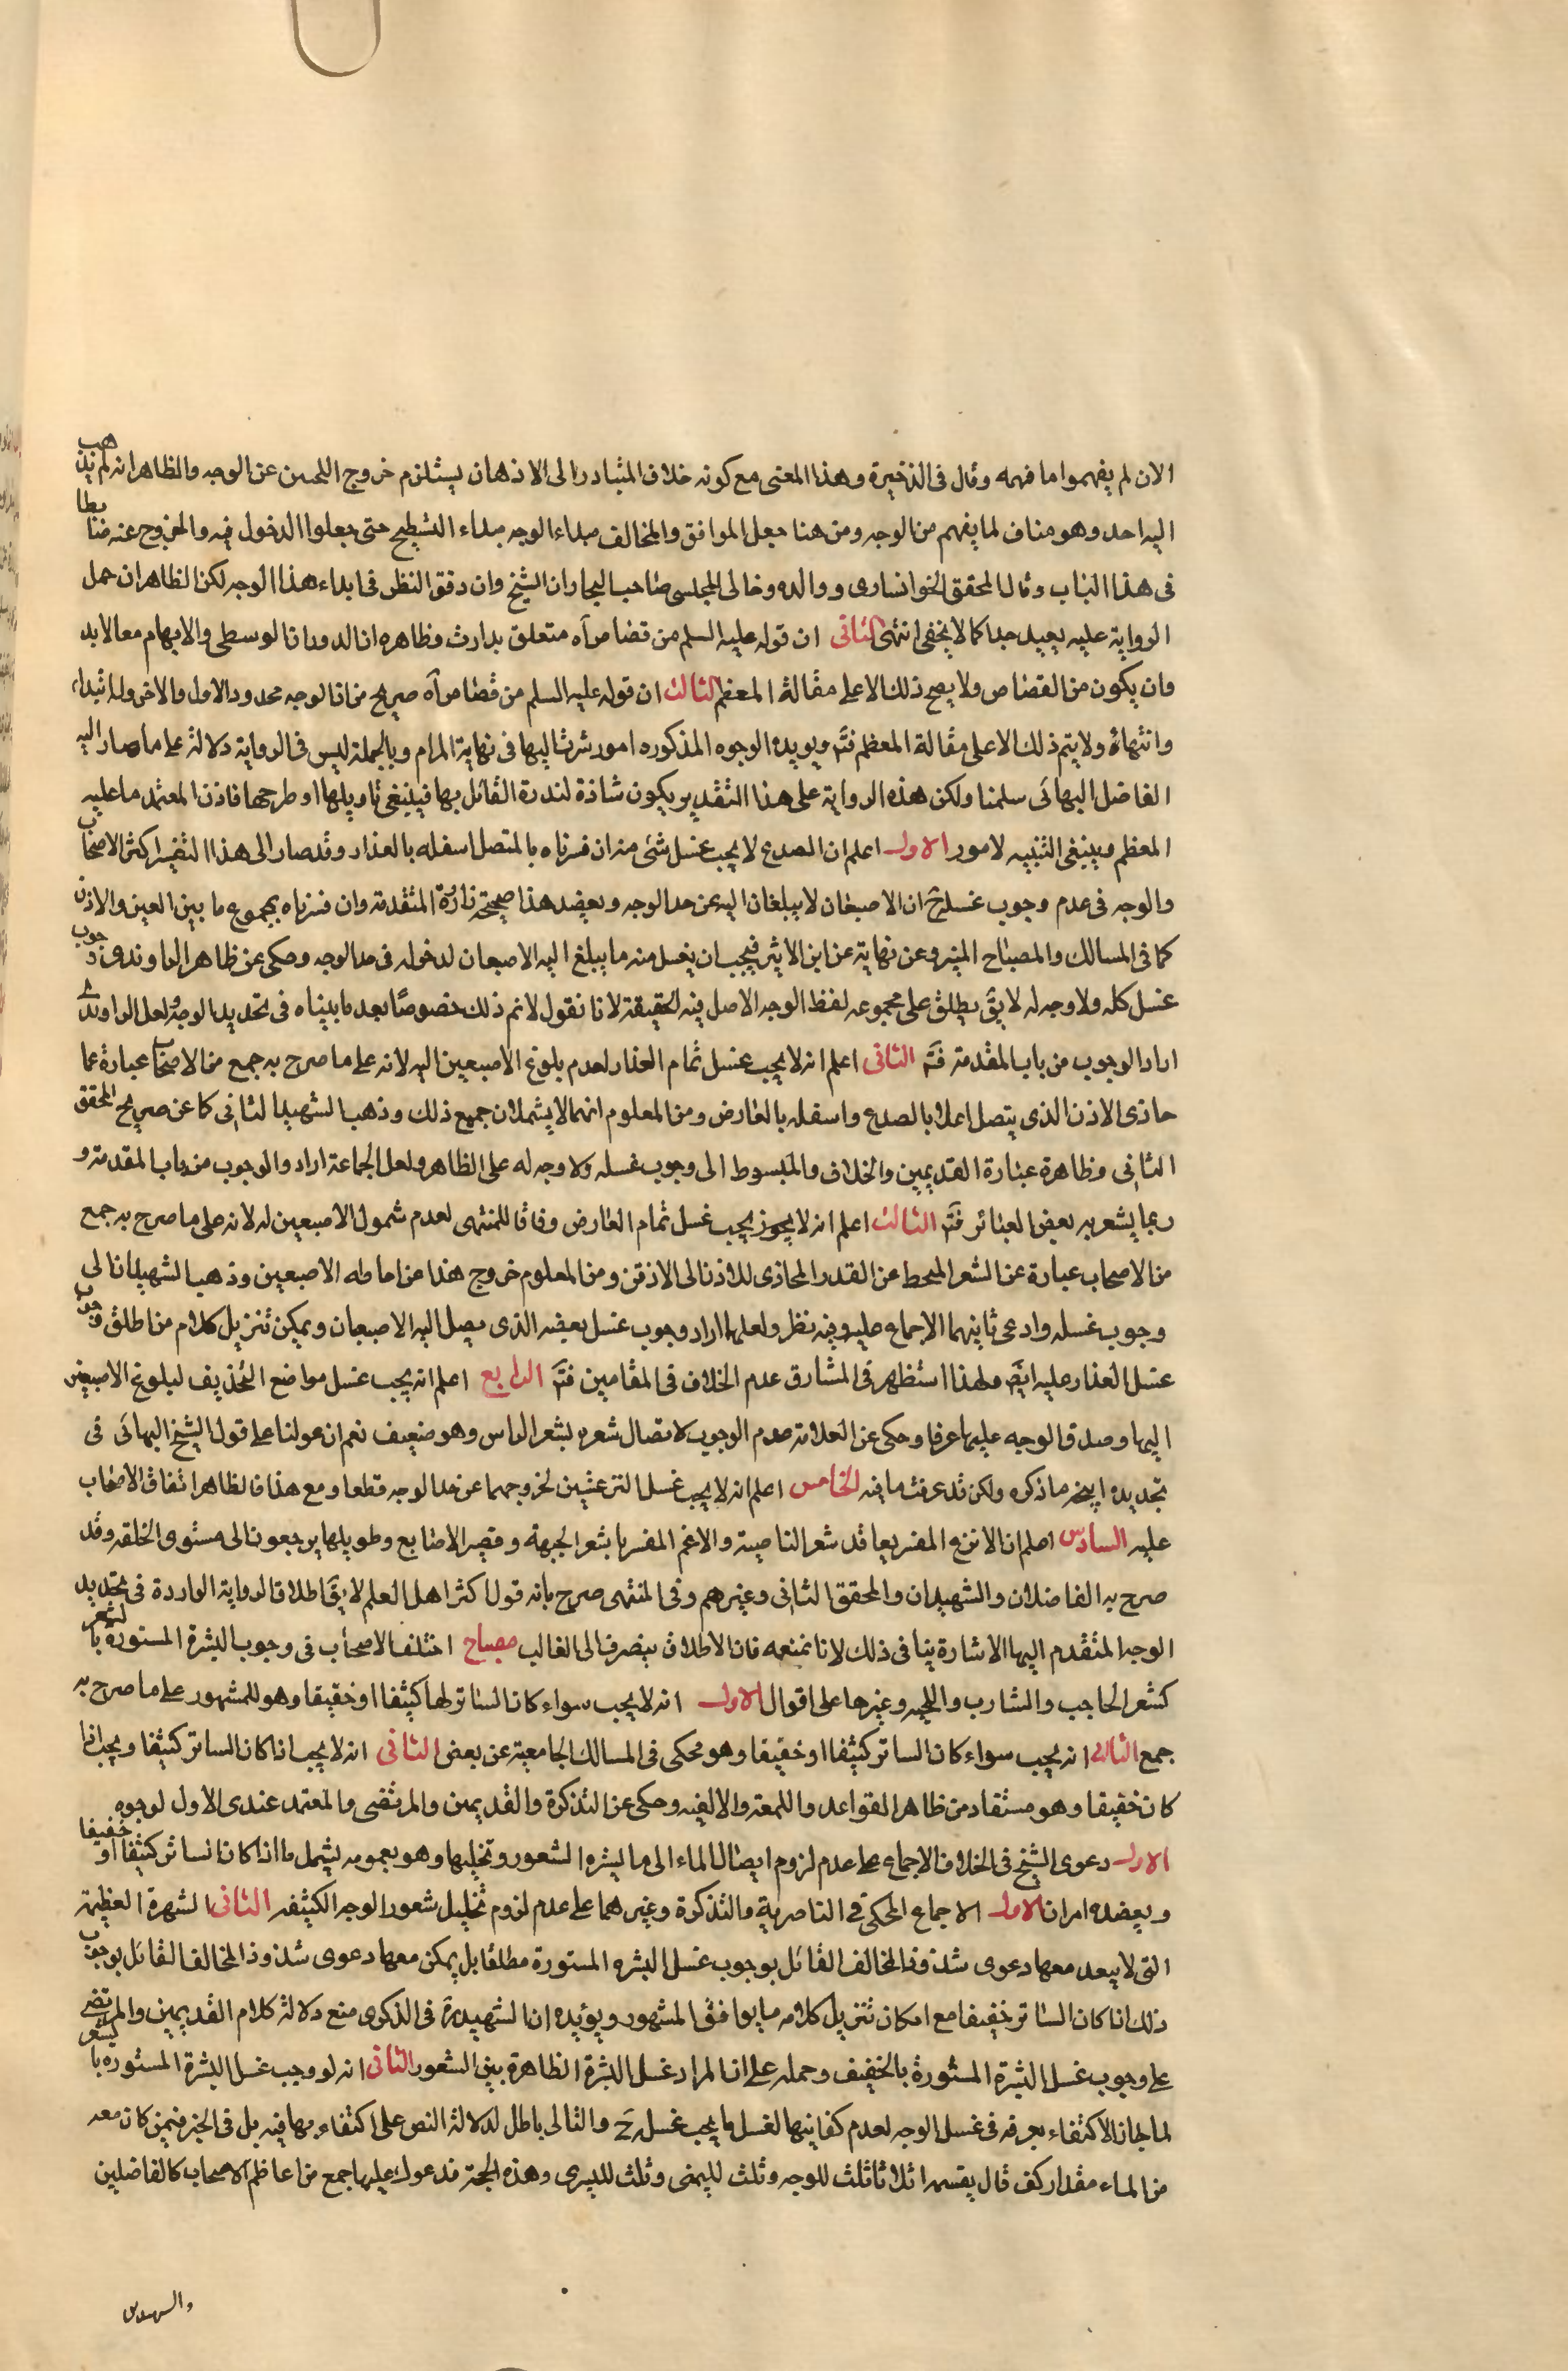 الان لم يفهموا ما فهمه وقال فى الذخيرة وهذا المعنى مع كونه خلاف المتبادر الى الاذهان يستلزم خروج اللحيين عن الوجه والظاهر انه لم يذهب
اليه احد وهو مناف لما يفهم من الوجه ومن هنا جعل الموافق والمخالف مبداء الوجه مبداء التسطيح حتى جعلوا الدخول فيه والخروج عنه مناطا
فى هذا الباب وقال المحقق الخوانسارى ووالده وخالى المجلسى صاحب البحار ان الشيخ وان دقق النظر فى ابداء هذا الوجه لكن الظاهر ان حمل
الرواية عليه بعيد جدا كما لا يخفى انتهى الثانى ان قوله عليه السلم من قصاص آه متعلق بدارت وظاهره ان الدوران الوسطى والابهام معا لابد
وان يكون من القصاص ولا يصح ذلك الا على مقالة المعظم الثالث ان قوله عليه السلم من قصاص آه صريح من ان الوجه محدود الاول والاخر وله ابتداء
وانتهاء ولا يتم ذلك الا على مقالة المعظم فتم ويويده الوجوه المذكوره امور شرت اليها فى نهاية المرام وبالجملة ليس فى الرواية دلالة على ما صار اليه
الفاضل البهائى سلمنا ولكن هذه الرواية على هذا التقدير يكون شاذة لندرة القائل بها فينبغى تاويلها او طرحها فاذن المعتمد ما عليه
المعظم وينبغى التنبيه لامور الاول اعلم ان الصدع لا يجب غسل شئ منه ان فسرناه بالمتصل اسفله بالعذار وقد صار الى هذا التفسير اكثر الاصحاب
والوجه فى عدم وجوب غسله ح ان الاصبعان لا يبلغان اليه عن حد الوجه ويعضد هذا صحيحة زرارة المتقدمة وان فسرناه بمجموع ما بين العين والاذن
كما فى المسالك والمصباح المنير وعن نهاية عن ابن الاثير فيجب ان يغسل منه ما يبلغ اليه الاصبعان لدخوله فى حد الوجه وحكى عن ظاهر الراوندى وجوب
غسل كله ولا وجه له لا يق يطلق على مجموعه لفظ الوجه الاصل فيه الحقيقة لانا نقول لانم ذلك خصوصًا بعد ما بيناه فى تحديد الوجه ولعل الراوندى
اراد الوجوب من باب المقدمة فتم الثانى اعلم انه لا يجب غسل تمام العذار لعدم بلوغ الاصبعين اليه لانه على ما صرح به جمع من الاصحاب عبارة عما
حاذى الاذن الذى يتصل اعلاه بالصدع واسفله بالعارض ومن المعلوم انهما لا يشملان جميع ذلك وذهب الشهيد الثانى كا عن صريح المحقق
الثانى وظاهرة عبارة القديمين والخلاف والمبسوط الى وجوب غسله ولا وجه له على الظاهر ولعل الجماعة ارادوا الوجوب من باب المقدمة و
ربما يشعر به بعض العبائر فتم الثالث اعلم انه لا يجوز يجب غسل تمام العارض وفاقا للمنتهى لعدم شمول الاصبعين له لانه على ما صرح به جمع
من الاصحاب عبارة عن الشعر المنحط عن القدر المحاذى للاذن الى الاذقن ومن المعلوم خروج هذا من احاطه الاصبعين وذهب الشهيدان الى
وجوب غسله وادعى ثانيهما الاجماع عليه وفيه نظر ولعلهما اراد وجوب غسل بعضه الذى يصل اليه الاصبعان ويمكن تنزيل كلام من اطلق وجوب
غسل العذار عليه ايضَ ولهذا استظهر فى المشارق عدم الخلاف فى المقامين فتم الرابع اعلم انه يجب غسل مواضع التحذيف لبلوغ الاصبعين
اليها وصدق الوجه عليها عرفا وحكى عن العلامة عدم الوجوب لاتصال شعره بشعر الراس وهو ضعيف نعم ان عولنا على قول الشيخ البهائى فى
تحديده ايجه ما ذكره ولكن قد عرفت ما فيه الخامس اعلم انه لا يجب غسل النزعتين لخروجهما عن حد الوجه قطعا ومع هذا فالظاهر اتفاق الاصحاب
عليه السادس اعلم ان الانزع المفسر بفاقد شعر الناصية والاغم المفسر باشعر الجبهة وقصير الاصابع وطويلها يرجعون الى مستوى الخلقه وقد
صرح به الفاضلان والشهيدان والمحقق الثانى وغيرهم وفى المنتهى صرح بانه قول اكثر اهل العلم لا يقَ اطلاق الرواية الواردة فى تحديد
الوجه المتقدم اليها الاشارة ينافى ذلك لانا نمنعه فان الاطلاق ينصرف الى الغالب مصباح اختلف الاصحاب فى وجوب البشرة المستورة بالشعر
كشعر الحاجب والشارب واللحيه وغيرها على اقوال الاول انه لا يجب سواء كان الساتر لها كثيفا او خفيفا وهو للمشهور على ما صرح به
جمع الثانى انه يجب سواء كان الساتر كثيفا او خفيفا وهو محكى فى المسالك الجامعية عن بعض الثانى انه لا يجب اذا كان الساتر كثيفا ويجب اذا
كان خفيفا وهو مستفاد من ظاهر القواعد واللمعة والالفيه وحكى عن التذكرة والقديمين والمرتضى والمعتمد عندى الاول لوجوه
الاول دعوى الشيخ فى الخلاف الاجماع على عدم لزوم ايصال الماء الى ما يستره الشعور وتخليها وهو بعمومه يشمل ما اذا كان الساتر كثيفا او خفيفا
ويعضده امران الاول الاجماع المحكى فى الناصرية والتذكرة وغيرهما على عدم لزوم تخليل شعور الوجه الكثيفه الثانى الشهرة العظيمة
التى لا يبعد معها دعوى شذوذ المخالف القائل بوجوب غسل البشره المستورة مطلقا بل يمكن معها دعوى شذوذ المخالف القائل بوجوب
ذلك اذا كان الساتر خفيفا مع امكان تنزيل كلامه ما يوافق المشهور ويؤيده ان الشهيد رَه فى الذكرى منع دلالة كلام القديمين والمرتضى
على وجوب غسل البشرة المستورة بالخفيف وحمله على ان المراد غسل البشرة الظاهرة بين الشعور الثانى انه لو وجب غسل البشرة المستوره بالشعر
لما جاز الاكتفاء بغرفه فى غسل الوجه لعدم كفايتها لغسل ما يجب غسله حَ والتالى باطل لدلالة النص على اكتفاء بها فيه بل فى الخبر فيمن كان معه
من الماء مقدار كف قال يقسمه اثلاثا ثلث للوجه وثلث لليمنى وثلث لليسرى وهذه الحجة قد عول عليها جمع من اعاظم الاصحاب كالفاضلين
والشهيدين